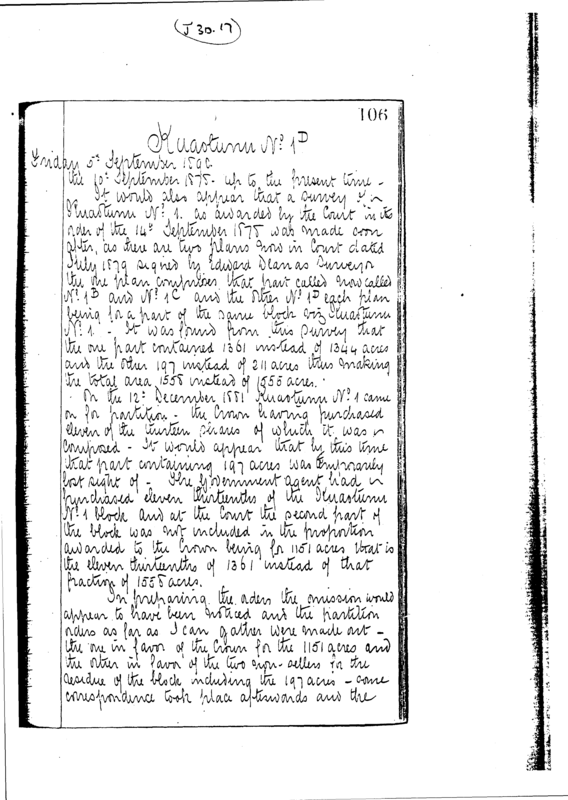 J 30.17
106
Kuaotunu No. 1D
Friday 5th September 1890
the 10th September 1878 - up to the present time -
It would also appear that a survey for
Kuaotunu No. 1. as awarded by the Court in its
order of the 14th September 1878 was made soon
after, as there are two plans now in Court dated
July 1879 signed by Edward Deanas Surveyor
the one plan comprises that part called now called
No. 1B and No. 1C and the other No. 1D each plan
being for a part of the same block viz Kuaotunu
No. 1. - It was found from this survey that
the one part contained 1361 instead of 1344 acres
and the other 197 instead of 211 acres thus making
the total area 1558 instead of 1555 acres.
On the 12th December 1881 Kuaotunu No. 1 came
on for partition - the Crown having purchased
eleven of the thirteen shares of which it was
composed - It would appear that by this time
that part containing 197 acres was temporarily
lost sight of - The Government agent had
purchased eleven thirteenths of the Kuaotunu
No. 1 block and at the Court the second part of
the block was not included in the proportion
awarded to the Crown being for 1151 acres that is
the eleven thirteenths of 1361 instead of that
fraction of 1558 acres.
In preparing the orders the omission would
appear to have been noticed and the partition
orders as far as I can gather were made out -
the one in favor of the Crown for the 1151 acres and
the other in favor of the two non-sellers for the
residue of the block including the 197 acres - some
correspondence took place afterwards and the